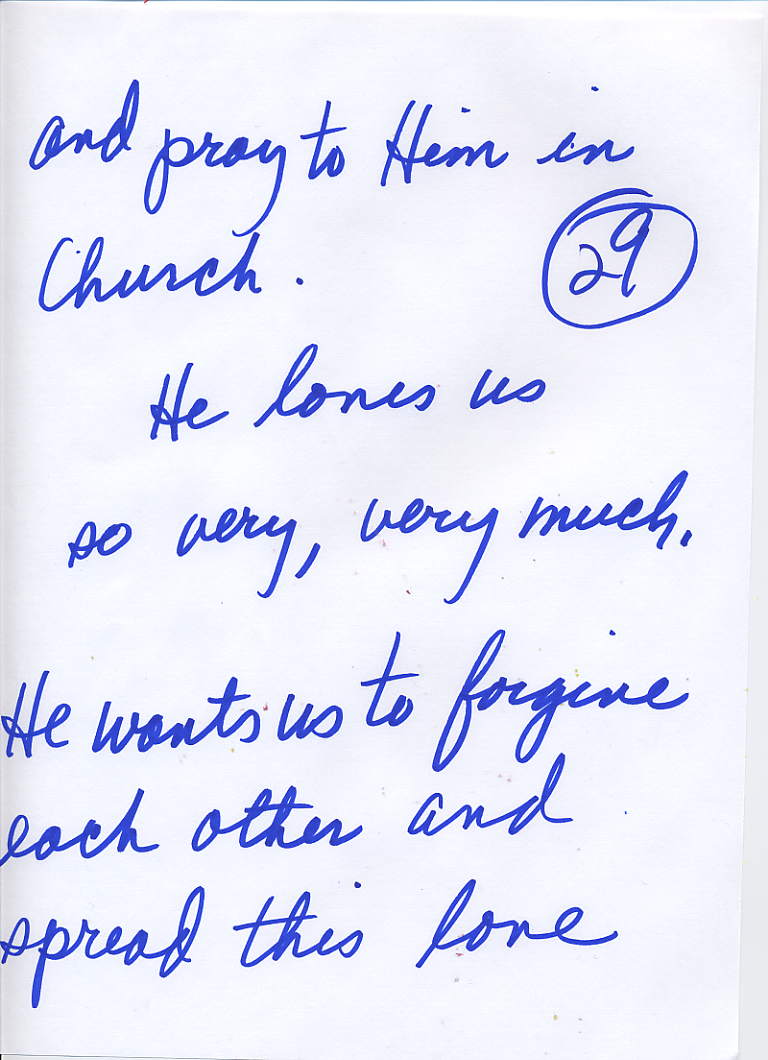 and pray to Him in
Church.
29
He loves us
so very, very much.
He wants us to forgive
each other and
spread this love